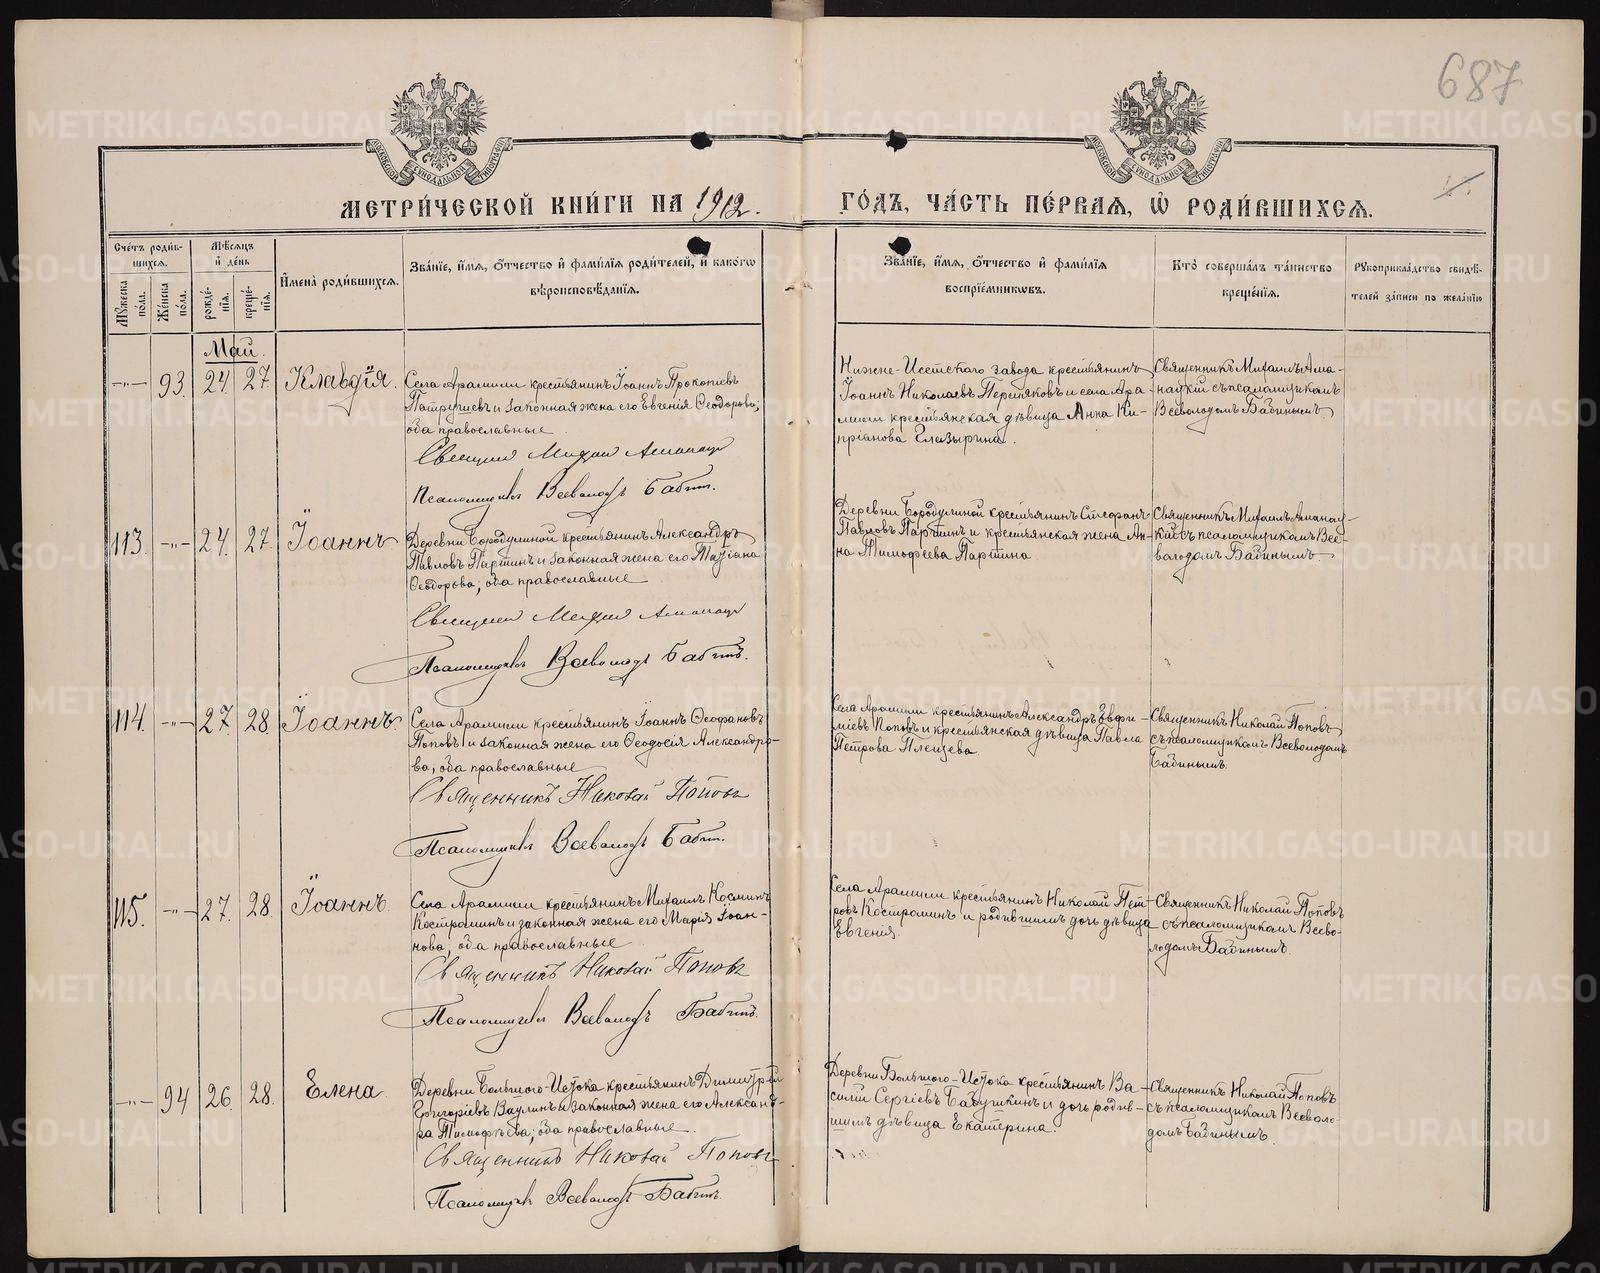 687
МОСКОВСКОЙ СѴНОДАЛЬНОЙ ТИПОГРАФІИ
МОСКОВСКОЙ СѴНОДАЛЬНОЙ ТИПОГРАФІИ
МЕТРИ́ЧЕСКОЙ КНИ́ГИ НА 1912.
ГО́ДЪ, ЧА́СТЬ ПЕ́РВАЯ, Ѡ РОДИ́ВШИХСЯ.
Сче́тъ роди́вшихся.
Мꙋ́жеска по́ла.
Же́нска по́ла.
Мѣ́сяцъ и де́нь
рожде́нїя.
креще́нїя.
Имена̀ роди́вшихся.
Зва́нїе, и́мя, ѻ́тчество и фами́лїя роди́телей, и како́гѡ
вѣроисповѣ́данїя.
Зва́нїе, и́мя, ѻ́тчество и фами́лїя
воспрїе́мникѡвъ.
Кто̀ соверша́лъ та́инство
креще́нїя.
Рꙋкоприкла́дство свидѣ́-
телей за́писи по жела́нїю
Май.
-„- 93. 24. 27. Клавдія.
Села Арамили крестьянинъ Іоаннъ Прокопіевъ
Патрушевъ и законная жена его Евгенія Ѳеодорова;
оба православные
Михаил
Псаломщикъ Всеволодъ Бабинъ.
Нижне-Исетскаго завода крестьянинъ
Іоаннъ Николаевъ Пермяковъ и села Ара
мили крестьянская дѣвица Анна Ки-
пріанова Глазырина.
Священникъ Михаилъ Ама-
нацкій съ псаломщикомъ
Всеволодомъ Бабинымъ
113. -„- 24. 27. Іоаннъ
Деревни Бородулиной крестьянинъ Александръ
Павловъ Паршинъ и законная жена его Татіана
Ѳеодорова; оба православные
Псаломщикъ Всеволодъ Бабинъ.
Деревни Бородулиной крестьянинъ Стефанъ
Павловъ Паршинъ и крестьянская жена Ан-
на Тимофеева Паршина
Священникъ Михаилъ Аманац-
кій съ псаломщикомъ Все-
володомъ Бабинымъ
114. -„- 27. 28. Іоаннъ.
Села Арамили крестьянинъ Іоаннъ Ѳеофановъ
Поповъ и законная жена его Ѳеодосія Александро-
ва; оба православные
Священникъ Николай Поповъ
Псаломщикъ Всеволодъ Бабинъ.
Села Арамили крестьянинъ Александръ Евфи-
міевъ Поповъ и крестьянская дѣвица Павла
Петрова Плещева
Священникъ Николай Поповъ
съ псаломщикомъ Всеволодомъ
Бабинымъ.
115. -„- 27. 28. Іоаннъ.
Села Арамили крестьянинъ Михаилъ Косминъ
Костроминъ и законная жена его Марія Іоан-
нова; оба православные
Священникъ Николай Поповъ
Псаломщикъ Всеволодъ Бабинъ.
Села Арамили крестьянинъ Николай Пет-
ровъ Костроминъ и родившимъ дочь дѣвица
Евгенія.
Священникъ Николай Поповъ
съ псаломщикомъ Всево-
лодомъ Бабинымъ.
-„- 94 26. 28. Елена.
Деревни Большого-Истока крестьянинъ Димитрій
Григоріевъ Ваулинъ и законная жена его Александ-
ра Тимофѣева; оба православные
Священникъ Николай Поповъ
Псаломщикъ Всеволодъ Бабинъ.
Деревни Большого-Истока крестьянинъ Ва-
силій Сергіевъ Бабушкинъ и дочь родив-
шимъ дѣвица Екатерина.
Священникъ Николай Поповъ
съ псаломщикомъ Всеволо-
домъ Бабинымъ.
METRIKI.GASO-URAL.RU